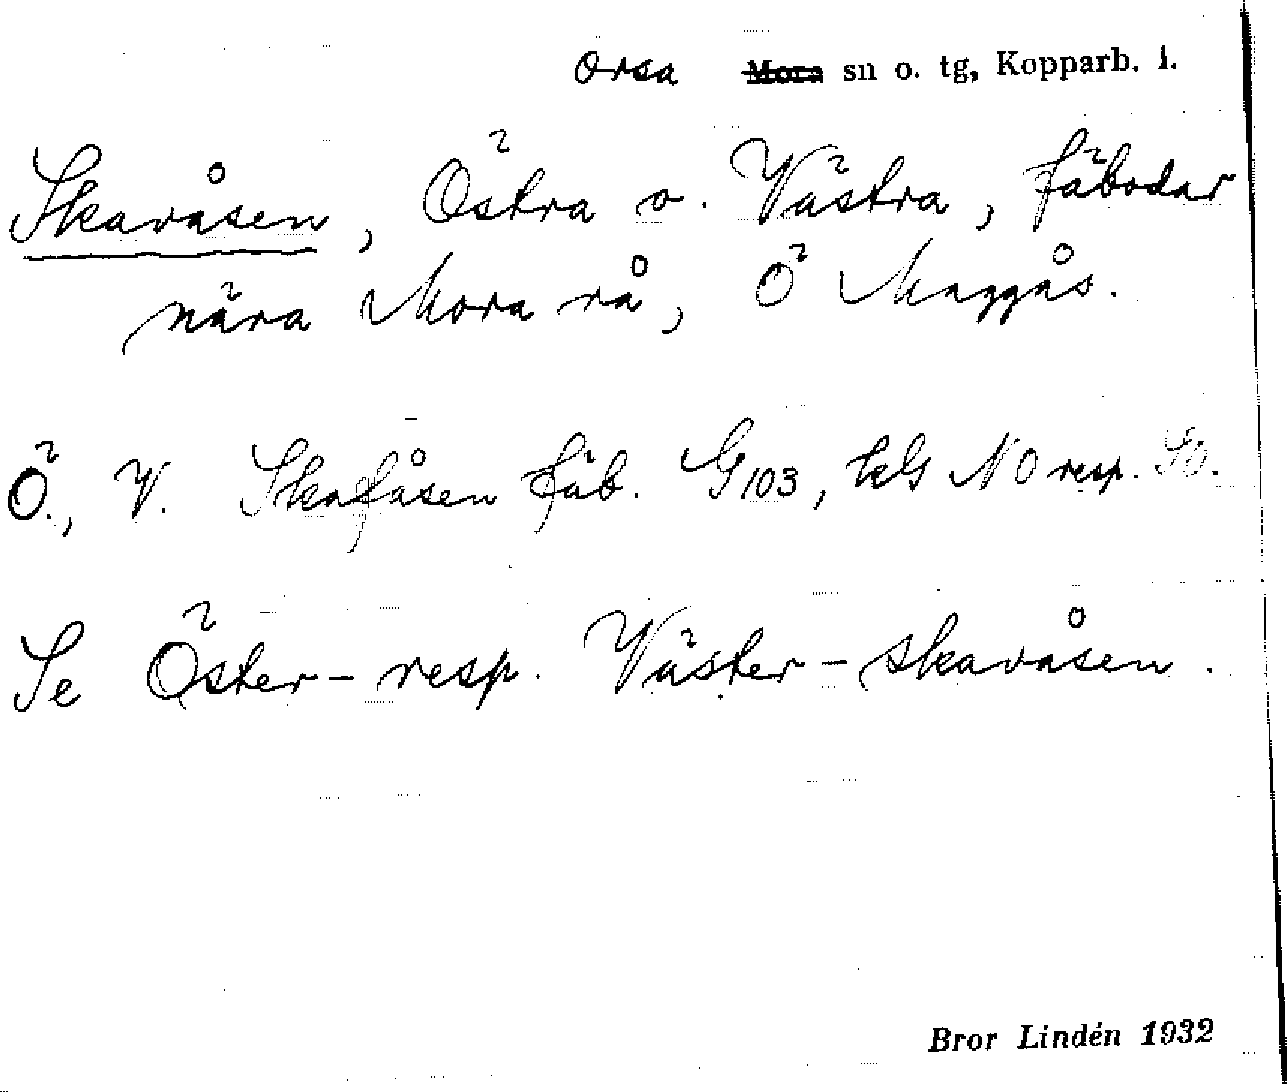 Orsa ~~Mora~~ sn o. tg, Kopparb. l.
Skavåsen, Östra o. Västra, fäbodar
nära Mora rå, Ö Maggås.
Ö., V. Skafåsen fäb. G103, kls NO resp. SO.
Se Öster- resp. Väster-skavåsen.
Bror Lindén 1932